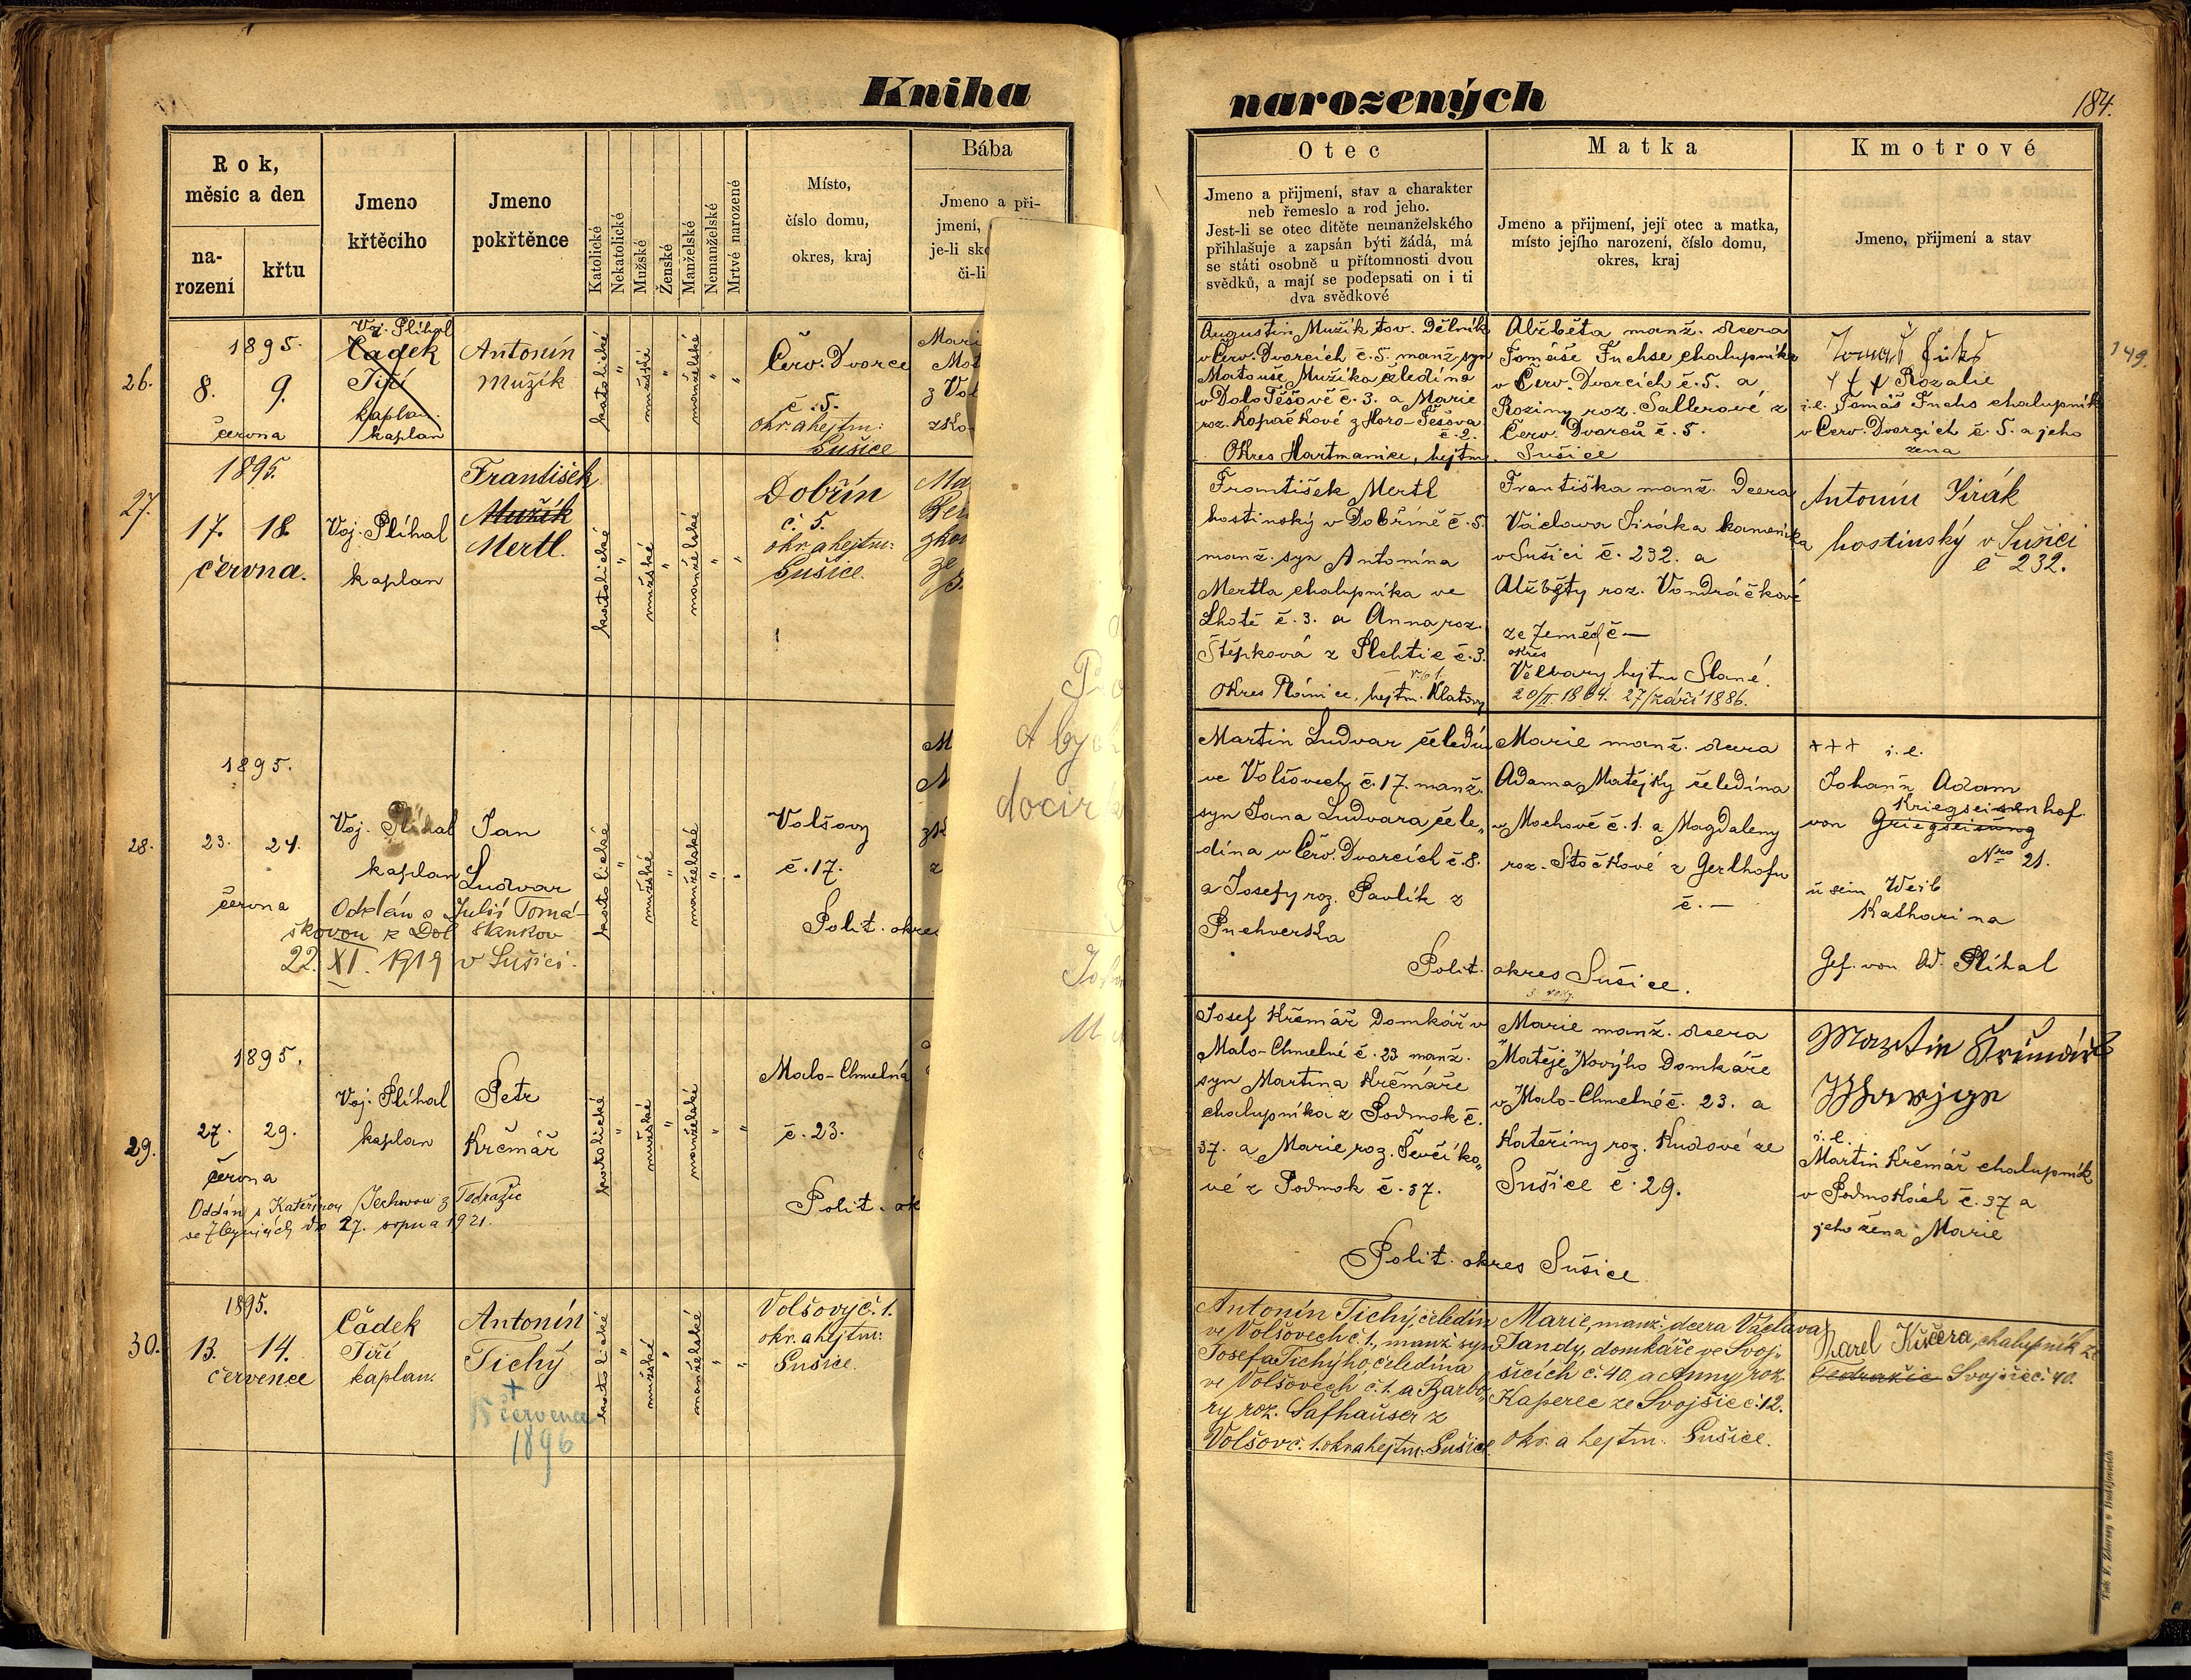 Kniha
narozených
184.
Rok,
měsíc a den
na-
rození
křtu
Jmeno
křtěcího
Jmeno
pokřtěnce
Katolické
Nekatolické
Mužské
Ženské
Manželské
Nemanželské
Mrtvé narozené
Místo,
číslo domu,
okres, kraj
Bába
Jmeno a při-
jmení,
je-li
či-li
Otec
Jmeno a přijmení, stav a charakter
neb řemeslo a rod jeho.
Jest-li se otec dítěte nemanželského
přihlašuje a zapsán býti žádá, má
se státi osobně u přítomnosti dvou
svědků, a mají se podepsati on i ti
dva svědkové
Matka
Jmeno a přijmení, její otec a matka,
místo jejího narození, číslo domu,
okres, kraj
Kmotrové
Jmeno, přijmení a stav
26.
1895.
8. 9.
června
Voj. Plíhal
Čadek
Jiří
kaplan.
kaplan
Antonín
Mužík
katolické
"
mužské
"
manželské
"
"
Červ. Dvorce
č. 5.
okr. a hejtm:
Sušice
Mari
Mat
z Vol
zko-
Augustin Mužík tov. dělník
v Červ. Dvorcích č. 5. manž. syn
Matouše Mužíka čeledína
v Dolo Těšově č. 3. a Marie
roz. Kopačkové z Horo-Těšova
č. 2.
Okres Hartmanice, hejtm. Sušice
Alžběta manž. dcera
Tomáše Fuchse chalupníka
v Červ. Dvorcích č. 5. a
Roziny roz. Sallerové z
Červ. Dvorců č. 5.
+++ Rozalie
i.e. Tomáš Fuchs chalupník
v Červ. Dvorcích č. 5. a jeho
žena
149.
27.
1895.
17. 18.
června.
Voj. Plíhal
kaplan
František
Mužík
Mertl.
katolické
"
mužské
"
manželské
"
"
Dobřín
č. 5.
okr. a hejtm:
Sušice.
Ma
František Mertl
hostinský v Dobříně č. 5.
manž. syn Antonína
Mertla chalupníka ve
Lhotě č. 3. a Anna roz.
Štěpková z Plehtic č. 3.
Okres Plánice, hejtm. Klatovy
Františka manž. dcera
Václava Siráka kameníka
v Sušici č. 232. a
Alžběty roz. Vondráčkové
ze Zeměch č —
okres
Velvary hejtm Slané.
20/II. 1864. 27/září 1886.
Antonín Sirák
hostinský v Sušici
č 232.
28.
1895.
23. 24.
června
Voj. Plíhal
kaplan
Jan
Ludvar
Oddán s Julií Tomá-
škovou z Dol Stankov
22. XI. 1919 v Sušici.
katolické
"
mužské
"
manželské
"
"
Volšovy
č. 17.
Polit. okres
Martin Ludvar čeledín
ve Volšovech č. 17. manž.
syn Jana Ludvara čele„
dína v Červ. Dvorcích č. 8.
a Josefy roz. Pavlík z
Puchverka
Marie manž. dcera
Adama Matějky čeledína
v Mochově č. 1. a Magdaleny
roz. Stočkové z Gerlhofu
č. —
Polit. okres Sušice.
+++ i. e.
Johann Adam
Kriegseisenhof
von Griegseisüng
Nro 21.
u sein Weib
Katharina
Gef. von Ad. Plíhal
29.
1895.
27. 29.
června
Voj. Plíhal
kaplan
Petr
Krčmář
Oddán s Kateřinou Jechovou z Tedražic
ve Zbynicích dne 27. srpna 1921.
katolické
"
mužské
"
manželské
"
"
Malo-Chmelná
č. 23.
Polit. ok
Josef Krčmář domkář v
Malo-Chmelné č. 23 manž.
syn Martina Krčmáře
chalupníka z Podmok č.
37. a Marie roz. Ševčíko„
vé z Podmok č. 37.
Marie manž. dcera
Matěje Novýho domkáře
v Malo-Chmelné č. 23. a
Kateřiny roz. Kudové ze
Sušice č. 29.
Polit. okres Sušice
Martin Krčmář
i. e.
Martin Krčmář chalupník
v Podmokách č. 37 a
jeho žena Marie
30.
1895.
13. 14.
července
Čadek
Jiří
kaplan.
Antonín
Tichý
+
15 července
1896
katolické
"
mužské
"
manželské
"
"
Volšovy č. 1.
okr. a hejtm:
Sušice.
Antonín Tichý, čeledín
ve Volšovech č. 1., manž. syn
Josefa Tichýho čeledína
ve Volšovech č. 1. a Barbo„
ry roz. Safhauser z
Volšov č. 1. okr. a hejtm. Sušice
Marie, manž. dcera Václava
Jandy, domkáře ve Svoj-
šicích č. 40. a Anny roz.
Kaperec ze Svojšic č. 12.
okr. a hejtm: Sušice.
Karel Kučera, chalupník ze
Tedražic Svojšic č. 40.
Tisk F. Zdarssy v Budějovicích